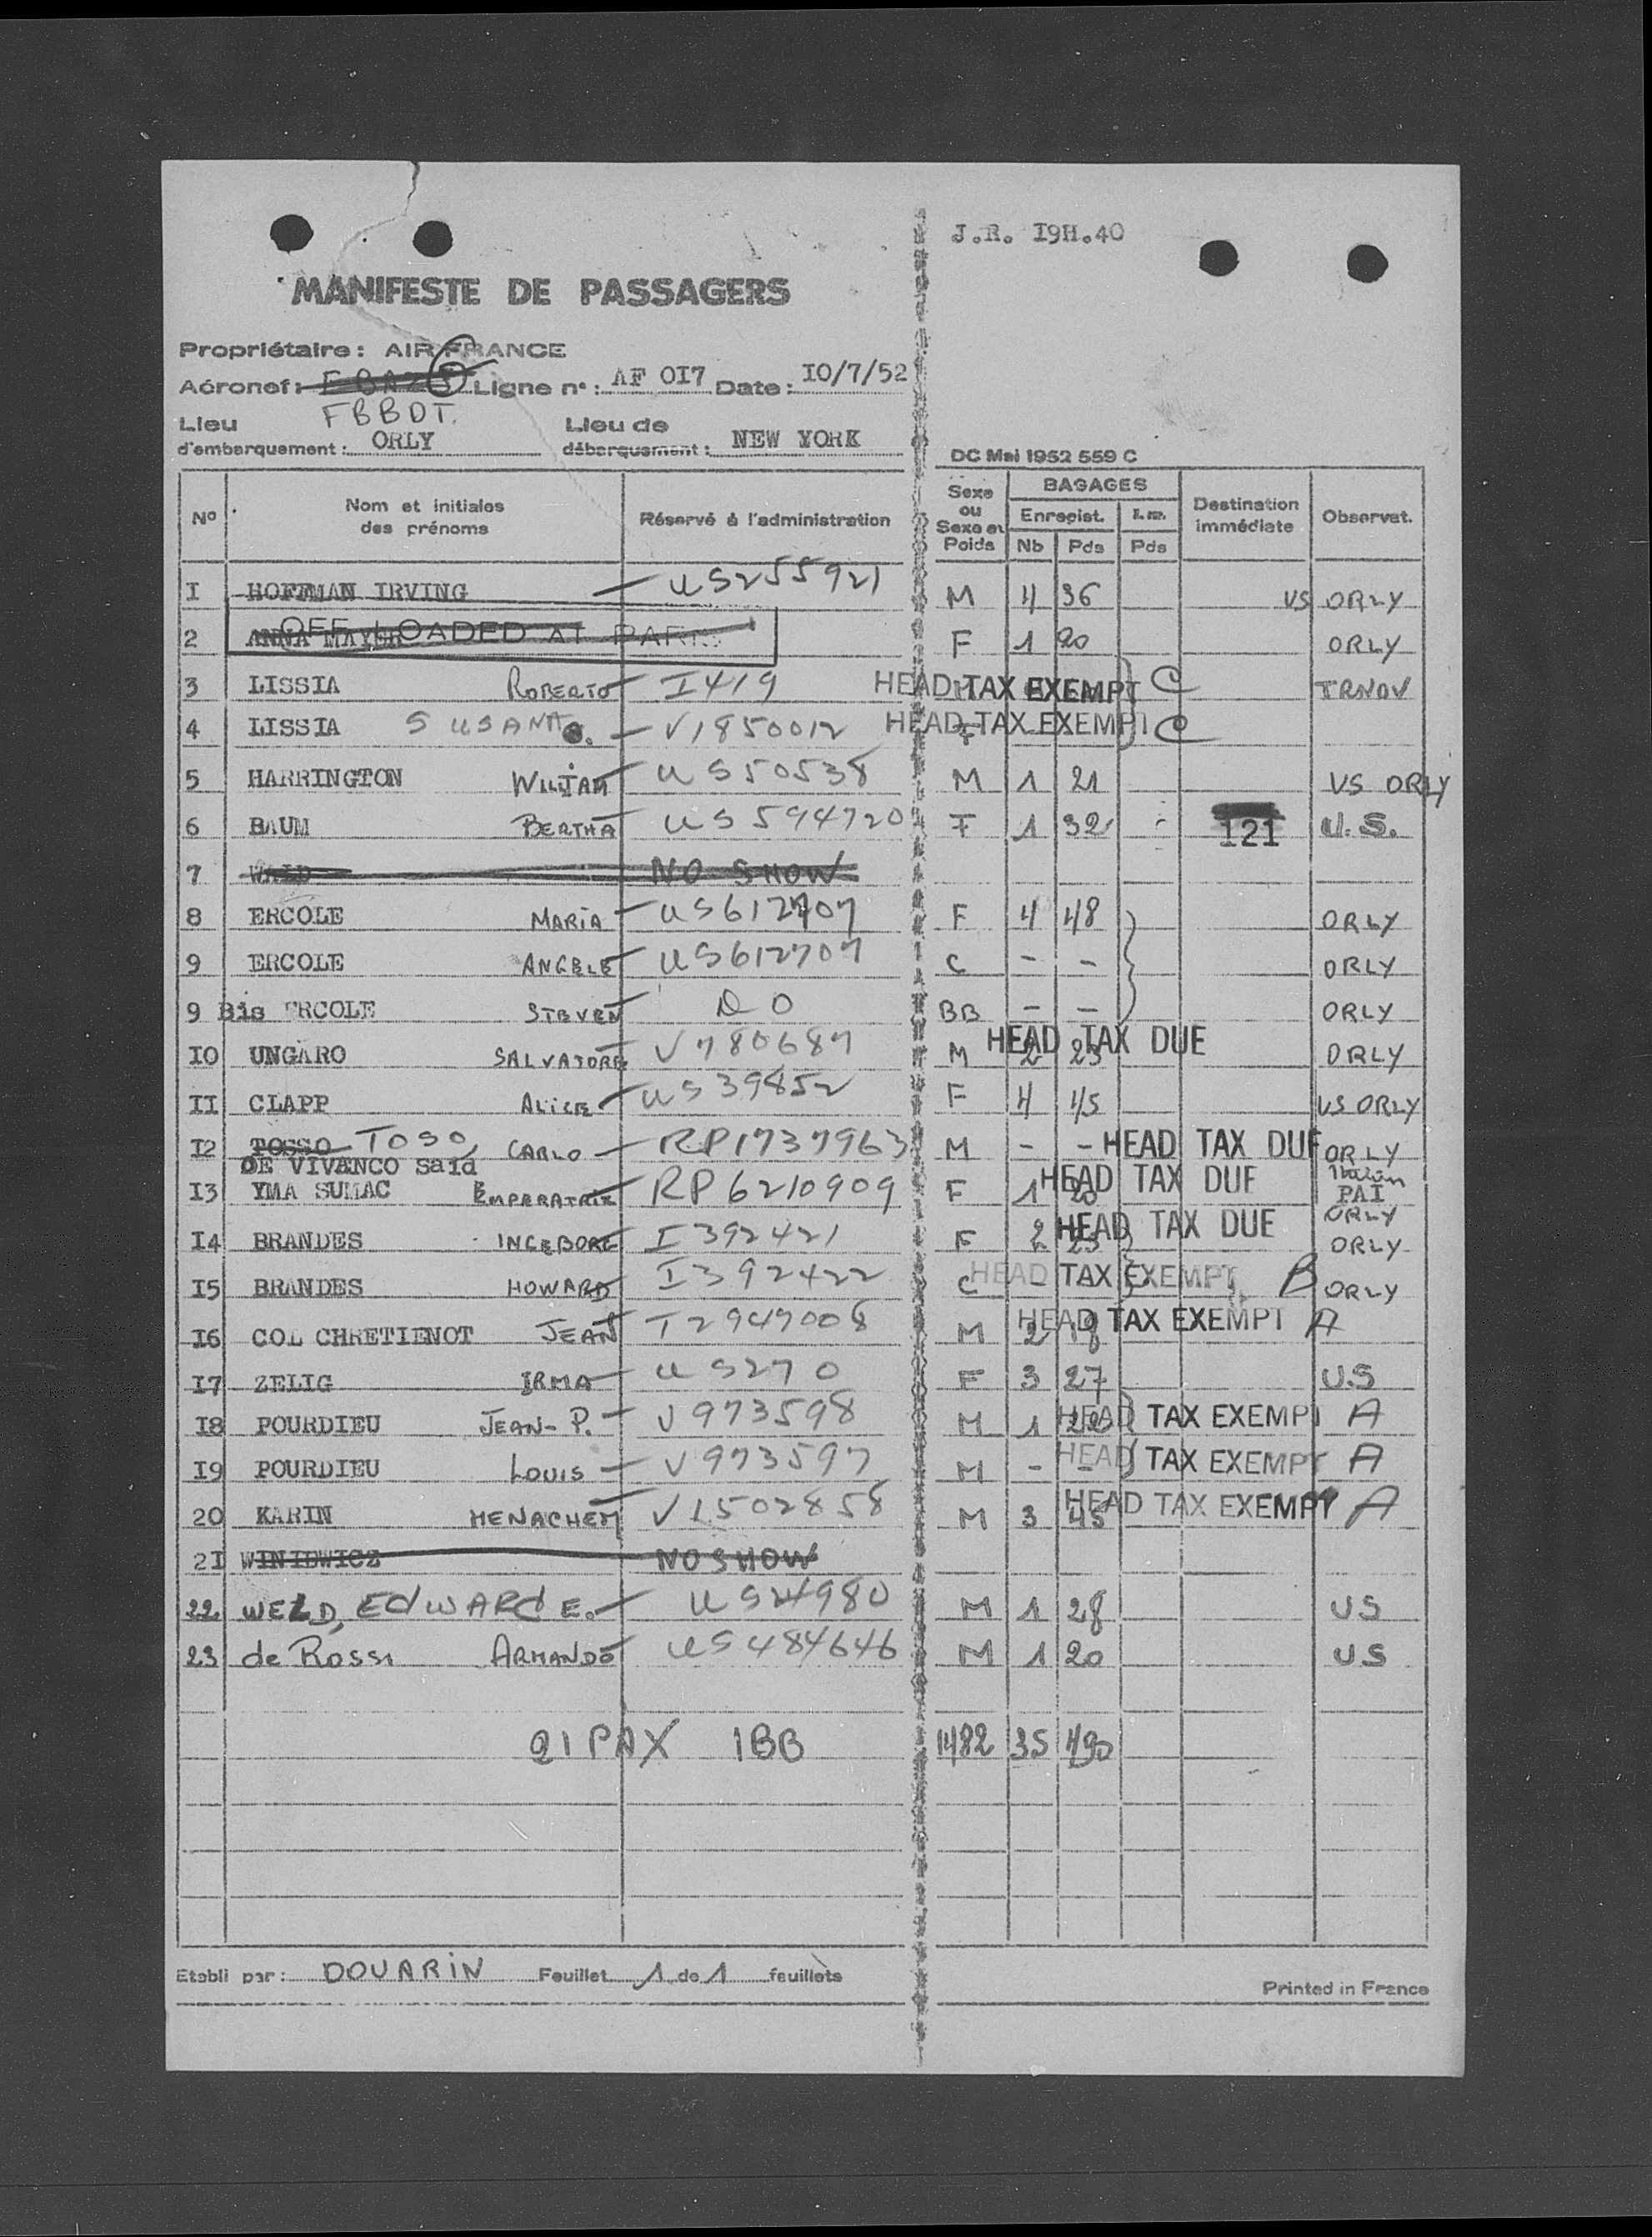 J.R. I9H.40
MANIFESTE DE PASSAGERS
Propriétaire : AIR FRANCE
Aéronef : Ligne n° : AF OI7 Date : IO/7/52
FBBDT.
Lieu d'embarquement : ORLY Lieu de débarquement : NEW YORK
DC Mai 1952 559 C
N° Nom et initiales des prénoms Réservé à l'administration Sexe ou Sexe et Poids BAGAGES Enregist. Nb Pds Pds Destination immédiate Observat.
I HOFFMAN IRVING — US255921 M 4 36 US ORLY
2 ANNA MAYER OFF LOADED AT PARIS F 1 20 ORLY
3 LISSIA ROBERTO — I419 HEAD TAX EXEMPT C TRNOV
4 LISSIA SUSANA — V1850012 F HEAD TAX EXEMPT C
5 HARRINGTON WILLIAM — US50538 M 1 21 US ORLY
6 BAUM BERTHA — US594720 F 1 32 - 121 U.S.
7 WALD NO SHOW
8 ERCOLE MARIA — US612707 F 4 48 ORLY
9 ERCOLE ANGELE — US612707 C - - ORLY
9 Bis ERCOLE STEVEN — DO BB - - ORLY
IO UNGARO SALVATORE — V780687 M 2 23 HEAD TAX DUE ORLY
II CLAPP ALICE — US39852 F 4 45 US ORLY
I2 TOSSO TOSO, CARLO — RP1737963 M - - HEAD TAX DUE ORLY
DE VIVANCO said
I3 YMA SUMAC EMPERATRIZ RP6210909 F 1 20 HEAD TAX DUE PAI ORLY
I4 BRANDES INGEBORG — I392421 F 2 23 HEAD TAX DUE ORLY
I5 BRANDES HOWARD — I392422 C HEAD TAX EXEMPT B ORLY
I6 COL CHRETIENOT JEAN — T2947008 M 2 18 HEAD TAX EXEMPT A
I7 ZELIG IRMA — US270 F 3 27 U.S
I8 POURDIEU JEAN-P. — V973598 M 1 22 HEAD TAX EXEMPT A
I9 POURDIEU LOUIS — V973597 M - - HEAD TAX EXEMPT A
20 KARIN MENACHEM — V1502858 M 3 45 HEAD TAX EXEMPT A
2I WINIEWICZ NO SHOW
22 WELD, EDWARD E. — US24980 M 1 28 US
23 de Rossi ARMANDO — US484646 M 1 20 US
21 PAX 1BB 1482 35 490
Etabli par : DOUARIN Feuillet 1 de 1 feuillets
Printed in France